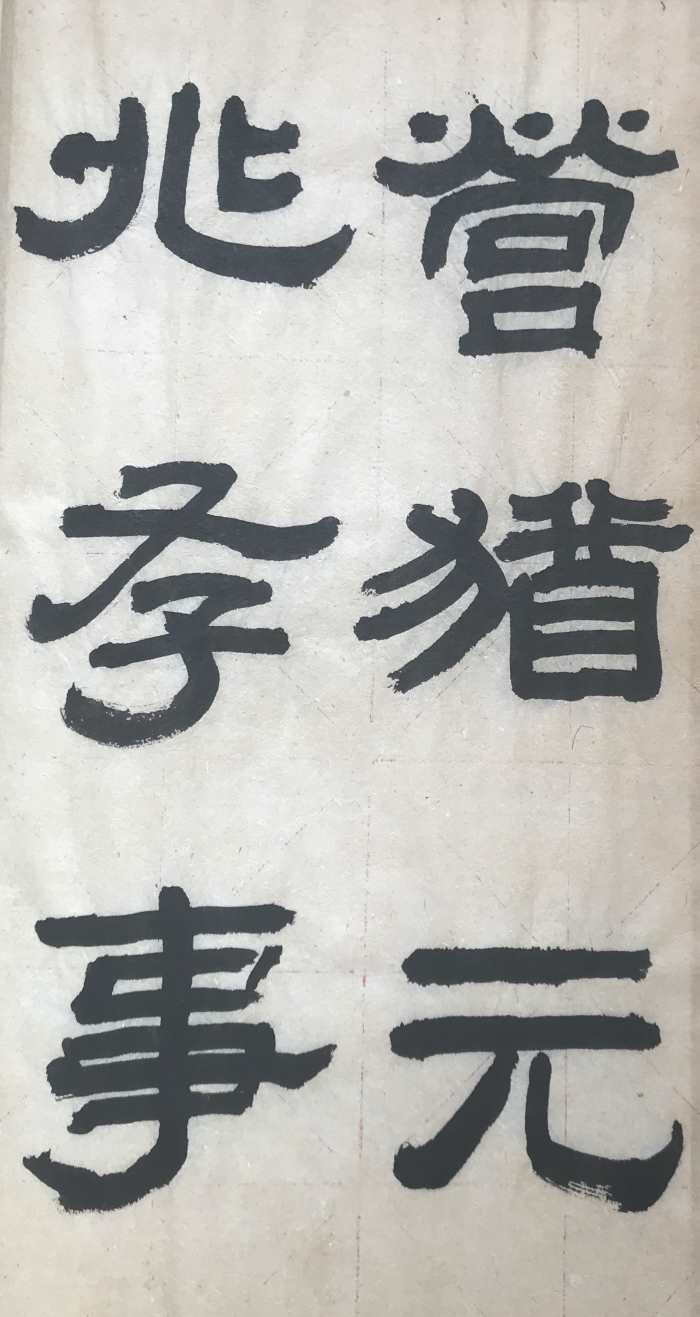 營猶元
兆孝事